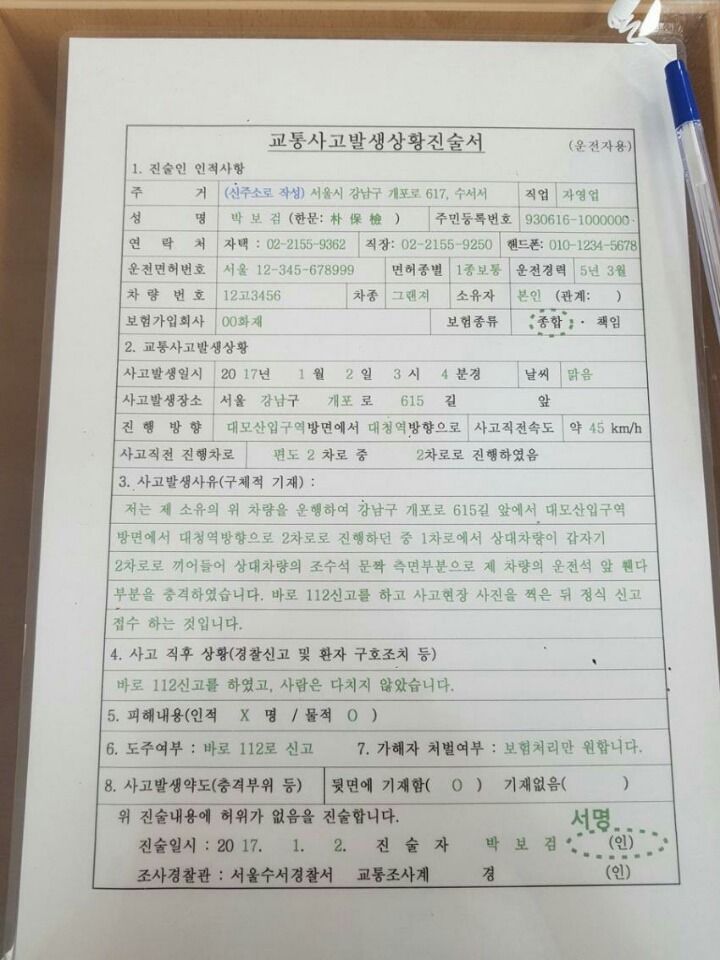 교통사고발생상황진술서 (운전자용)
1. 진술인 인적사항
주 거 (신주소로 작성) 서울시 강남구 개포로 617, 수서서 직업 자영업
성 명 박 보 검 (한문: 朴 保 檢 ) 주민등록번호 930616-1000000
연 락 처 자택 : 02-2155-9362 직장: 02-2155-9250 핸드폰: 010-1234-5678
운전면허번호 서울 12-345-678999 면허종별 1종보통 운전경력 5년 3월
차 량 번 호 12고3456 차종 그랜져 소유자 본인 (관계: )
보험가입회사 00화재 보험종류 종합 · 책임
2. 교통사고발생상황
사고발생일시 20 17년 1 월 2 일 3 시 4 분경 날씨 맑음
사고발생장소 서울 강남구 개포 로 615 길 앞
진 행 방 향 대모산입구역방면에서 대청역방향으로 사고직전속도 약 45 km/h
사고직전 진행차로 편도 2 차로 중 2차로로 진행하였음
3. 사고발생사유(구체적 기재) :
저는 제 소유의 위 차량을 운행하여 강남구 개포로 615길 앞에서 대모산입구역
방면에서 대청역방향으로 2차로로 진행하던 중 1차로에서 상대차량이 갑자기
2차로로 끼어들어 상대차량의 조수석 문짝 측면부분으로 제 차량의 운전석 앞 휀다
부분을 충격하였습니다. 바로 112신고를 하고 사고현장 사진을 찍은 뒤 정식 신고
접수 하는 것입니다.
4. 사고 직후 상황(경찰신고 및 환자 구호조치 등)
바로 112신고를 하였고, 사람은 다치지 않았습니다.
5. 피해내용(인적 X 명 / 물적 O )
6. 도주여부 : 바로 112로 신고 7. 가해자 처벌여부 : 보험처리만 원합니다.
8. 사고발생약도(충격부위 등) 뒷면에 기재함( O ) 기재없음( )
위 진술내용에 허위가 없음을 진술합니다.
서명
진술일시 : 20 17. 1. 2. 진 술 자 박 보 검 (인)
조사경찰관 : 서울수서경찰서 교통조사계 경 (인)